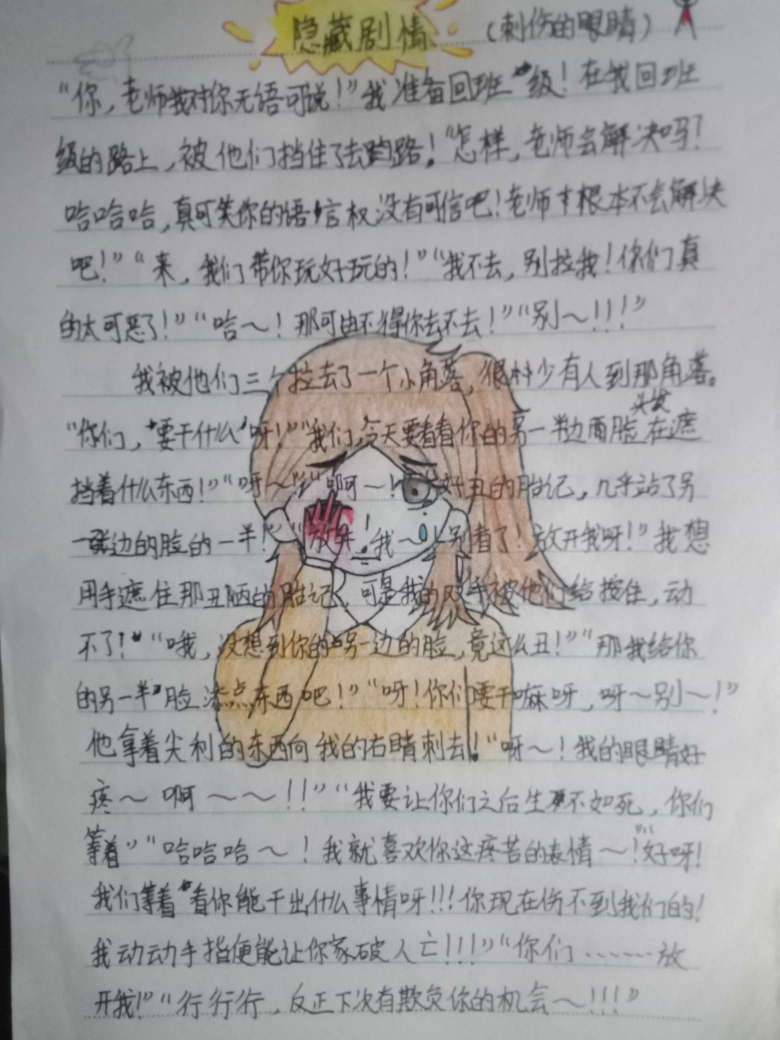 隐藏剧情 （刺伤的眼睛）
“你，老师我对你无语可说！”我准备回班级！在我回班
级的路上，被他们挡住了去路！“怎样，老师会解决吗！
哈哈哈，真可笑你的语信权没有可信吧！老师根本不会解决
吧！”“来，我们带你玩好玩的！”“我不去，别拉我！你们真
的太可恶了！”“哈～！那可由不得你去不去！”“别～！！！”
我被他们三个拉去了一个小角落，很少有人到那角落。
“你们，要干什么呀！”“我们，今天要看看你的另一半边面脸头发在遮
挡着什么东西！”“呀～！”“啊～！好丑的胎记，几乎站了另
一边的脸的一半！”“放开我～！别看了！放开我呀！”我想
用手遮住那丑陋的胎记，可是我的双手被他们给按住，动
不了！“哦，没想到你的另一边的脸，竟这么丑！”“那我给你
的另一半脸添点东西吧！”“呀！你们要干嘛呀，呀～别～！”
他拿着尖利的东西向我的右睛刺去！“呀～！我的眼睛好
疼～啊～～！！”“我要让你们之后生不如死，你们
等着”“哈哈哈～！我就喜欢你这疼苦的表情～！”“好呀！
我们等着看你能干出什么事情呀！！！你现在伤不到我们的！
我动动手指便能让你家破人亡！！！”“你们……放
开我！”“行行行，反正下次有欺负你的机会～！！！”